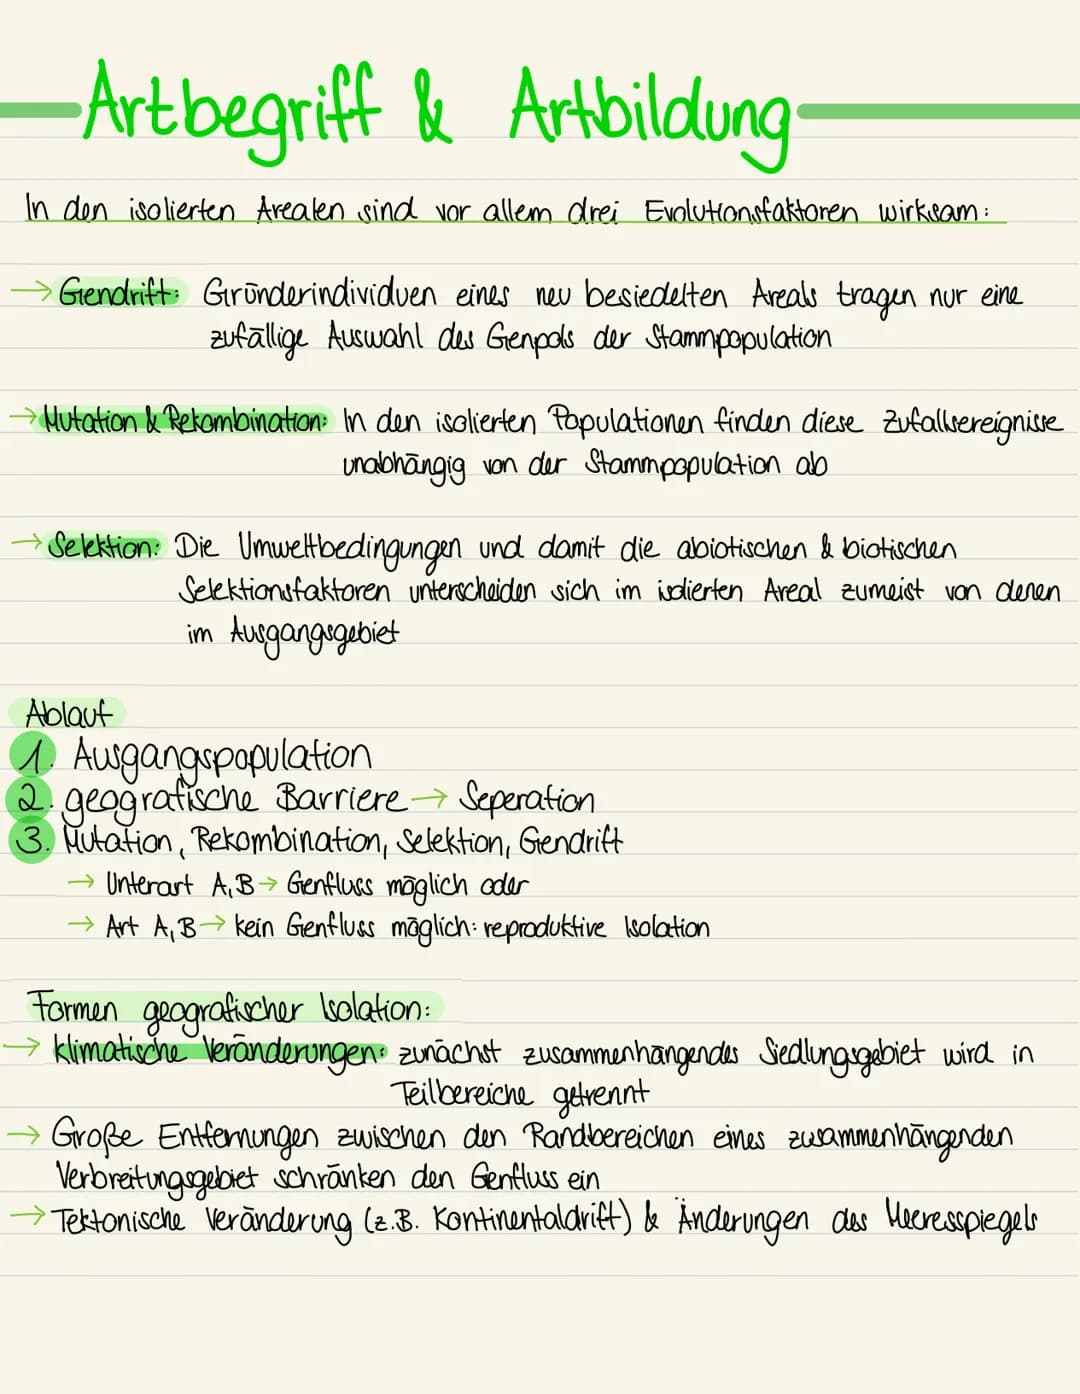 Artbegriff & Artbildung
In den isolierten Arealen sind vor allem drei Evolutionsfaktoren wirksam:
→ Gendrift: Gründerindividuen eines neu besiedelten Areals tragen nur eine
zufällige Auswahl des Genpols der Stammpopulation
→ Mutation & Rekombination: In den isolierten Populationen finden diese Zufallsereignisse
unabhängig von der Stammpopulation ab
→ Selektion: Die Umweltbedingungen und damit die abiotischen & biotischen
Selektionsfaktoren unterscheiden sich im isolierten Areal zumeist von denen
im Ausgangsgebiet
Ablauf
1. Ausgangspopulation
2. geografische Barriere → Seperation
3. Mutation, Rekombination, Selektion, Gendrift
→ Unterart A, B → Genfluss möglich oder
→ Art A, B → kein Genfluss möglich: reproduktive Isolation
Formen geografischer Isolation:
→ klimatische Veränderungen: zunächst zusammenhängendes Siedlungsgebiet wird in
Teilbereiche getrennt
→ Große Entfernungen zwischen den Randbereichen eines zusammenhängenden
Verbreitungsgebiet schränken den Genfluss ein
→ Tektonische Veränderung (z.B. Kontinentaldrift) & Änderungen des Meeresspiegels